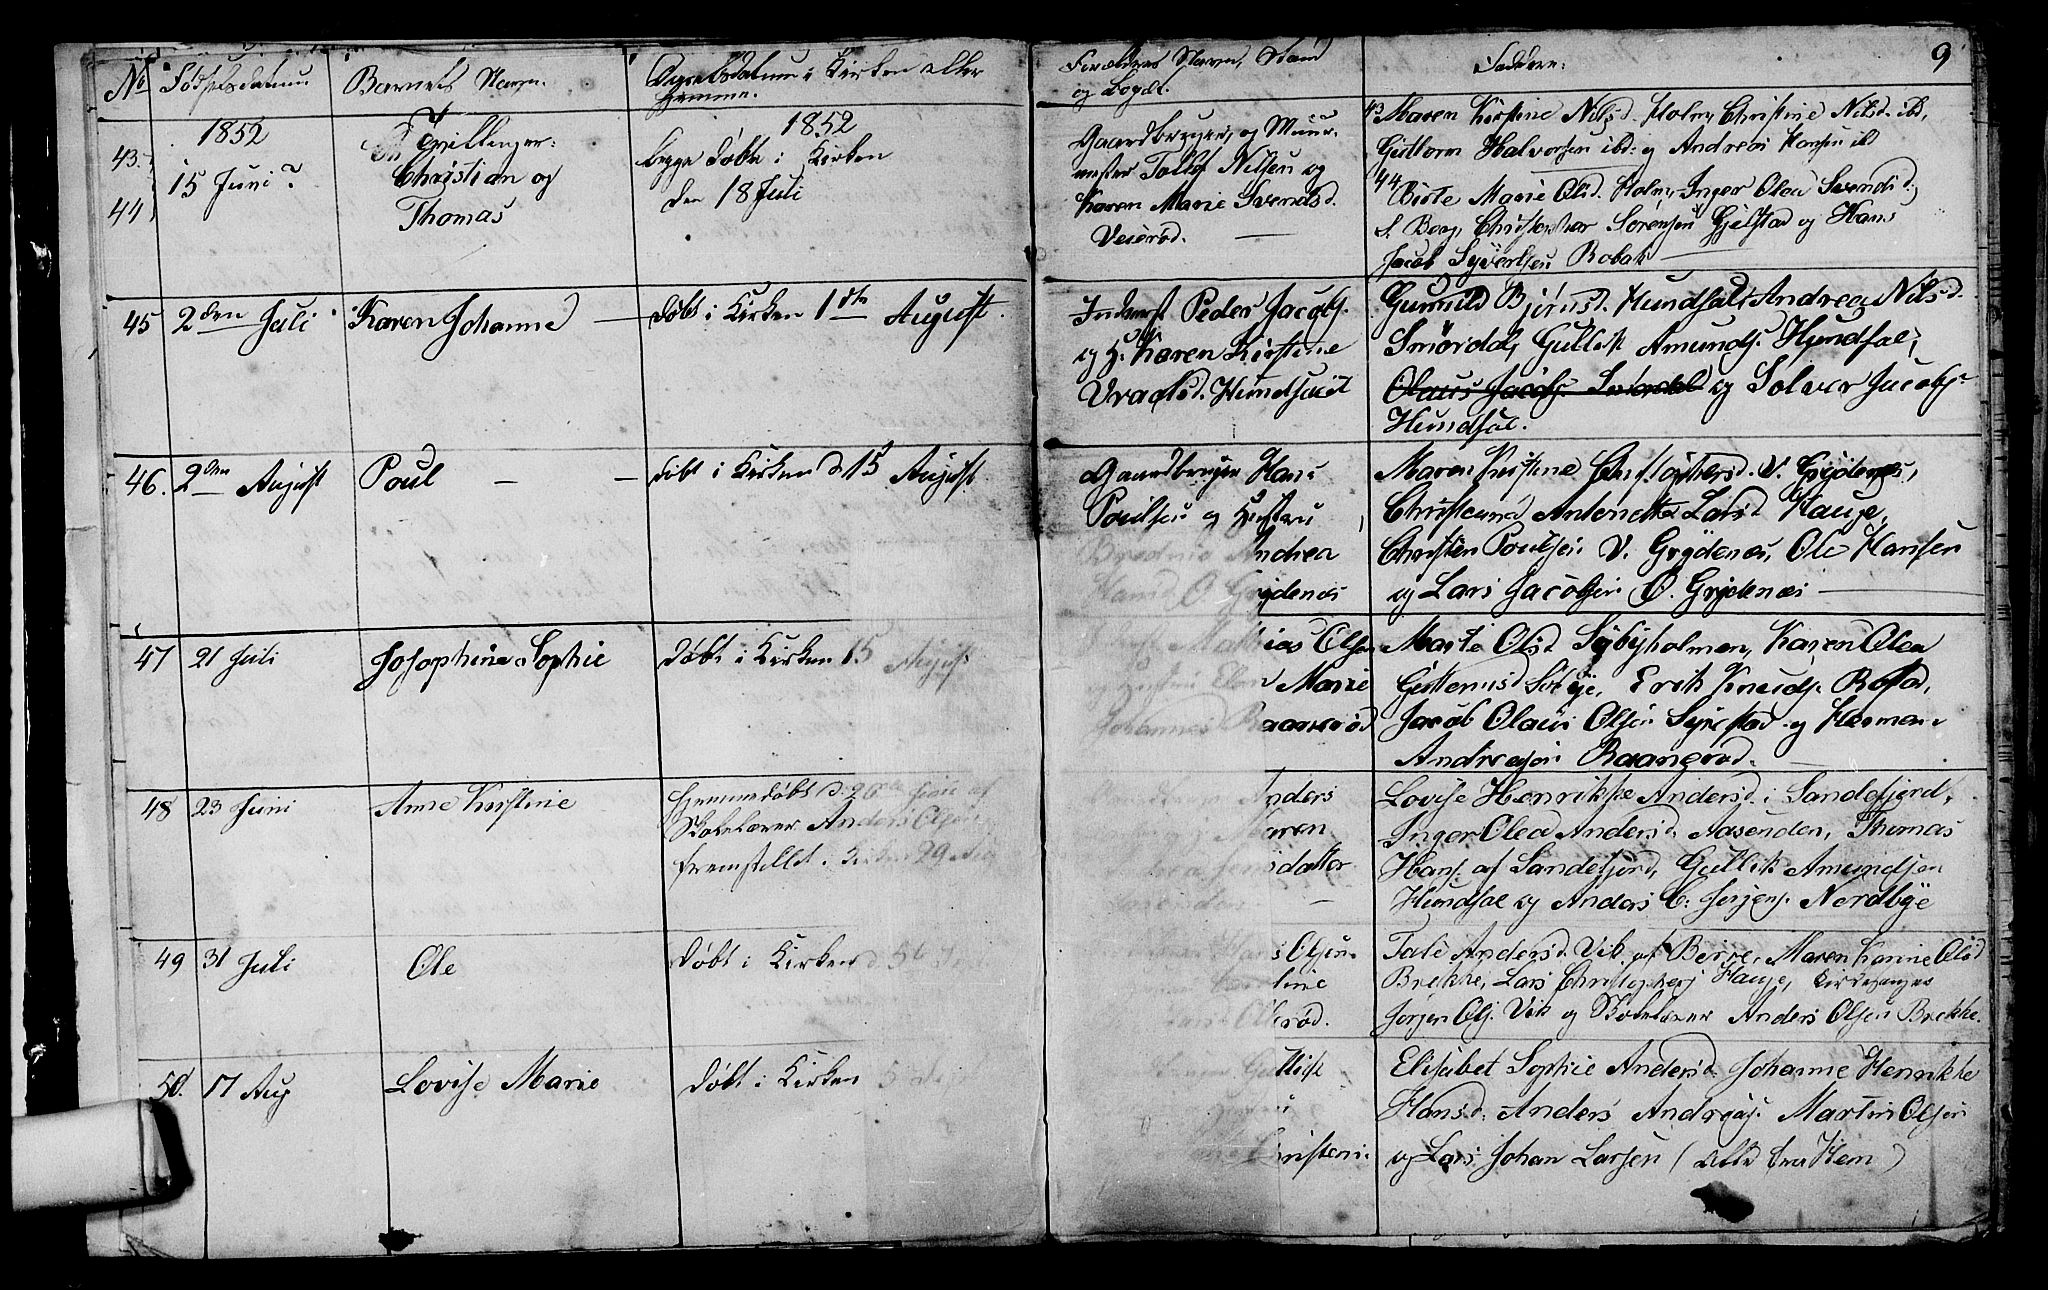 9
No Fødselsdatum Barnets Navn. Daabsdatum i Kirken eller hjemme. Forældres Navn, Stand og Bopæl. Faddere:
1852
43.
44.
15 Juni?
Tvillinger:
Christian og
Thomas
1852
begge døbte i Kirken
den 18 Juli
Gaardbruger og Muur-
mester Tollef Nilsen og
Karen Marie Svendsd.
Veierød.
43 Maren Kirstine Nilsd. Holm, Christine Nilsd. ibd,
Guttorm Halvorsen ibd: og Andreas Hansen ibd
44 Birte Marie Olsd. Holm, Inger Olea Svendsd.
Borg, Christopher Sørensen Gjelstad og Hans
Jacob Syvertsen Robak
45 2den Juli Karen Johanne — døbt i Kirken 1ste August.
Inderst Peder Jacobs.
og H. Karen Kirstine
Hundsal
Gunnild Bjørnsd. Hundsal, Andrea Nilsd.
Smørdal, Gullik Amunds. Hundsal,
Olaus Jacobs. Smørdal og Solver Jacobs.
Hundsal.
46. 2den August Poul — — døbt i Kirken d 15 August
Gaardbruger Hans
Poulsen og Hustru
Andrea
Hansd Ø. Grydenæs
Maren Kirstine Christophersd. V. Grydenæs,
Antonette Larsd Hauge,
Christen Poulsen V. Grydenæs, Ole Hansen
og Lars Jacobsen Ø. Grydenæs —
47 21 Juli Josephine Sophie døbt i Kirken 15 August
Mathias Olsen
og Hustru Elen Marie
Johannesd Raanerød
Marte Olsd Sybyholmen, Karen Olea
Erik Knuds. Rostad,
Jacob Olaus Olsen og Herman
Andreasen Raanerød.
48 23 Juni Anne Kirstine
hjemmedøbt d. 26de Juni af
Skolelærer Anders Olsen
fremstillet i Kirken 29 Aug
Anders
Maren
datter
—
Lovise Henrikke Andersd. i Sandefjord,
Inger Olea Andersd. Aasenden, Thomas
Hans. af Sandefjord, Gullik Amundsen
Hundsal og Anders C: Jørgens. Nordbye
49 31 Juli Ole døbt i Kirken d. 5te
Hans Olsen
Olerød.
Tale Andersd. Vik af Berre, Maren Karine Olsd
Brekke, Lars Christophers. Hauge, Kirkesanger
Jørgen Ols. Vik og Skolelærer Anders Olsen Brekke.
50. 17 Aug Lovise Marie døbt i Kirken 5
Elisabet Sophie Andersd. Johanne Henrikke
Hansd. Anders Andreas. Martin Olsen
og Lars Johan Larsen (alle fra Hem)